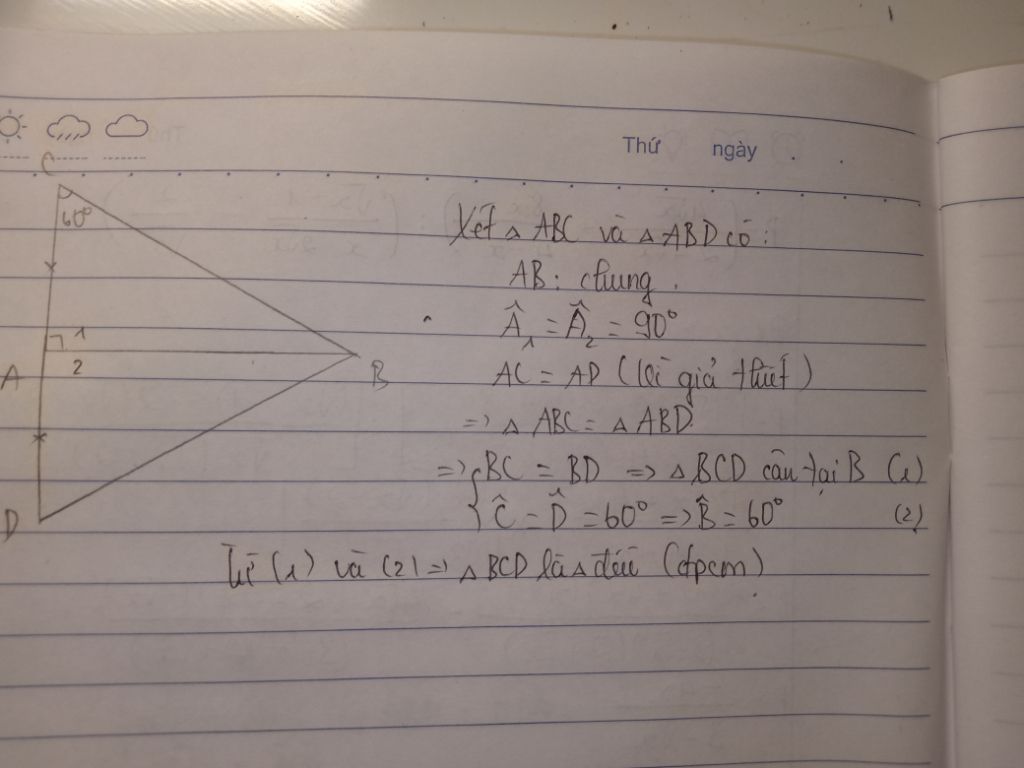 Thứ ngày
C
60°
1
A
2
B
D
Xét △ ABC và △ ABD có :
AB : chung .
Â₁ = Â₂ = 90°
AC = AD ( lời giả thiết )
=> △ ABC = △ ABD
=> { BC = BD => △ BCD cân tại B (1)
{ Ĉ = D̂ = 60° => B̂ = 60° (2)
Từ (1) và (2) => △ BCD là △ đều (đpcm)